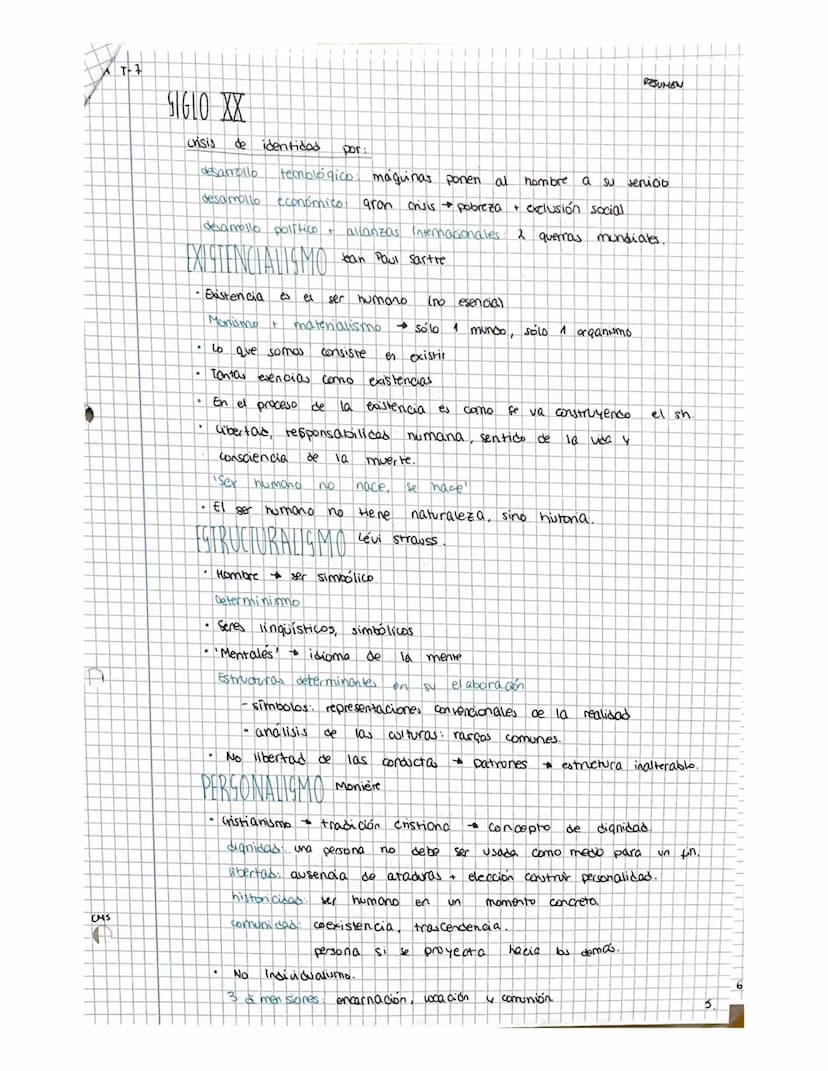 T-7
RESUMEN
SIGLO XX
crisis de identidad por:
desarrollo tecnológico: máquinas ponen al hombre a su servicio
desarrollo económico: gran crisis → pobreza + exclusión social
desarrollo político + alianzas internacionales: 2 guerras mundiales.
EXISTENCIALISMO Jean Paul Sartre
· Existencia es el ser humano (no esencia)
Monismo + materialismo → sólo 1 mundo, sólo 1 organismo
· Lo que somos consiste en existir
· Tantas esencias como existencias
· En el proceso de la existencia es como se va construyendo el sh.
· Libertad, responsabilidad humana, sentido de la vida y
consciencia de la muerte.
'Ser humano no nace, se hace'
· El ser humano no tiene naturaleza, sino historia.
ESTRUCTURALISMO Lévi Strauss.
· Hombre → ser simbólico
Determinismo
· Seres lingüísticos, simbólicos
· 'Mentalés' → idioma de la mente
Estructuras determinantes en su elaboración
- símbolos: representaciones convencionales de la realidad
- análisis de las culturas: rasgos comunes.
· No libertad de las conductas → patrones → estructura inalterable.
PERSONALISMO Moniére
· Cristianismo → tradición cristiana → concepto de dignidad.
dignidad: una persona no debe ser usada como medio para un fin.
libertad: ausencia de ataduras + elección construir personalidad.
historicidad: ser humano en un momento concreto.
comunidad: coexistencia, trascendencia.
persona si se proyecta hacia los demás.
· No individualismo.
3 dimensiones: encarnación, vocación y comunión
CMS
6
5.